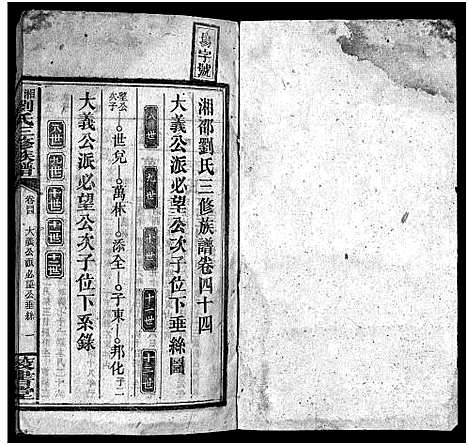 湘邵劉氏三修族譜卷四十四
大義公派必望公次子位下垂絲圖
十一世
十二世
望公次子
世兒—萬林—添全—子東—邦化子二
大義公派必望公次子位下系錄
八世
九世
十世
十一世
十二世
劉氏三修族譜
卷四十四
大義公派必望公垂絲
一
字號